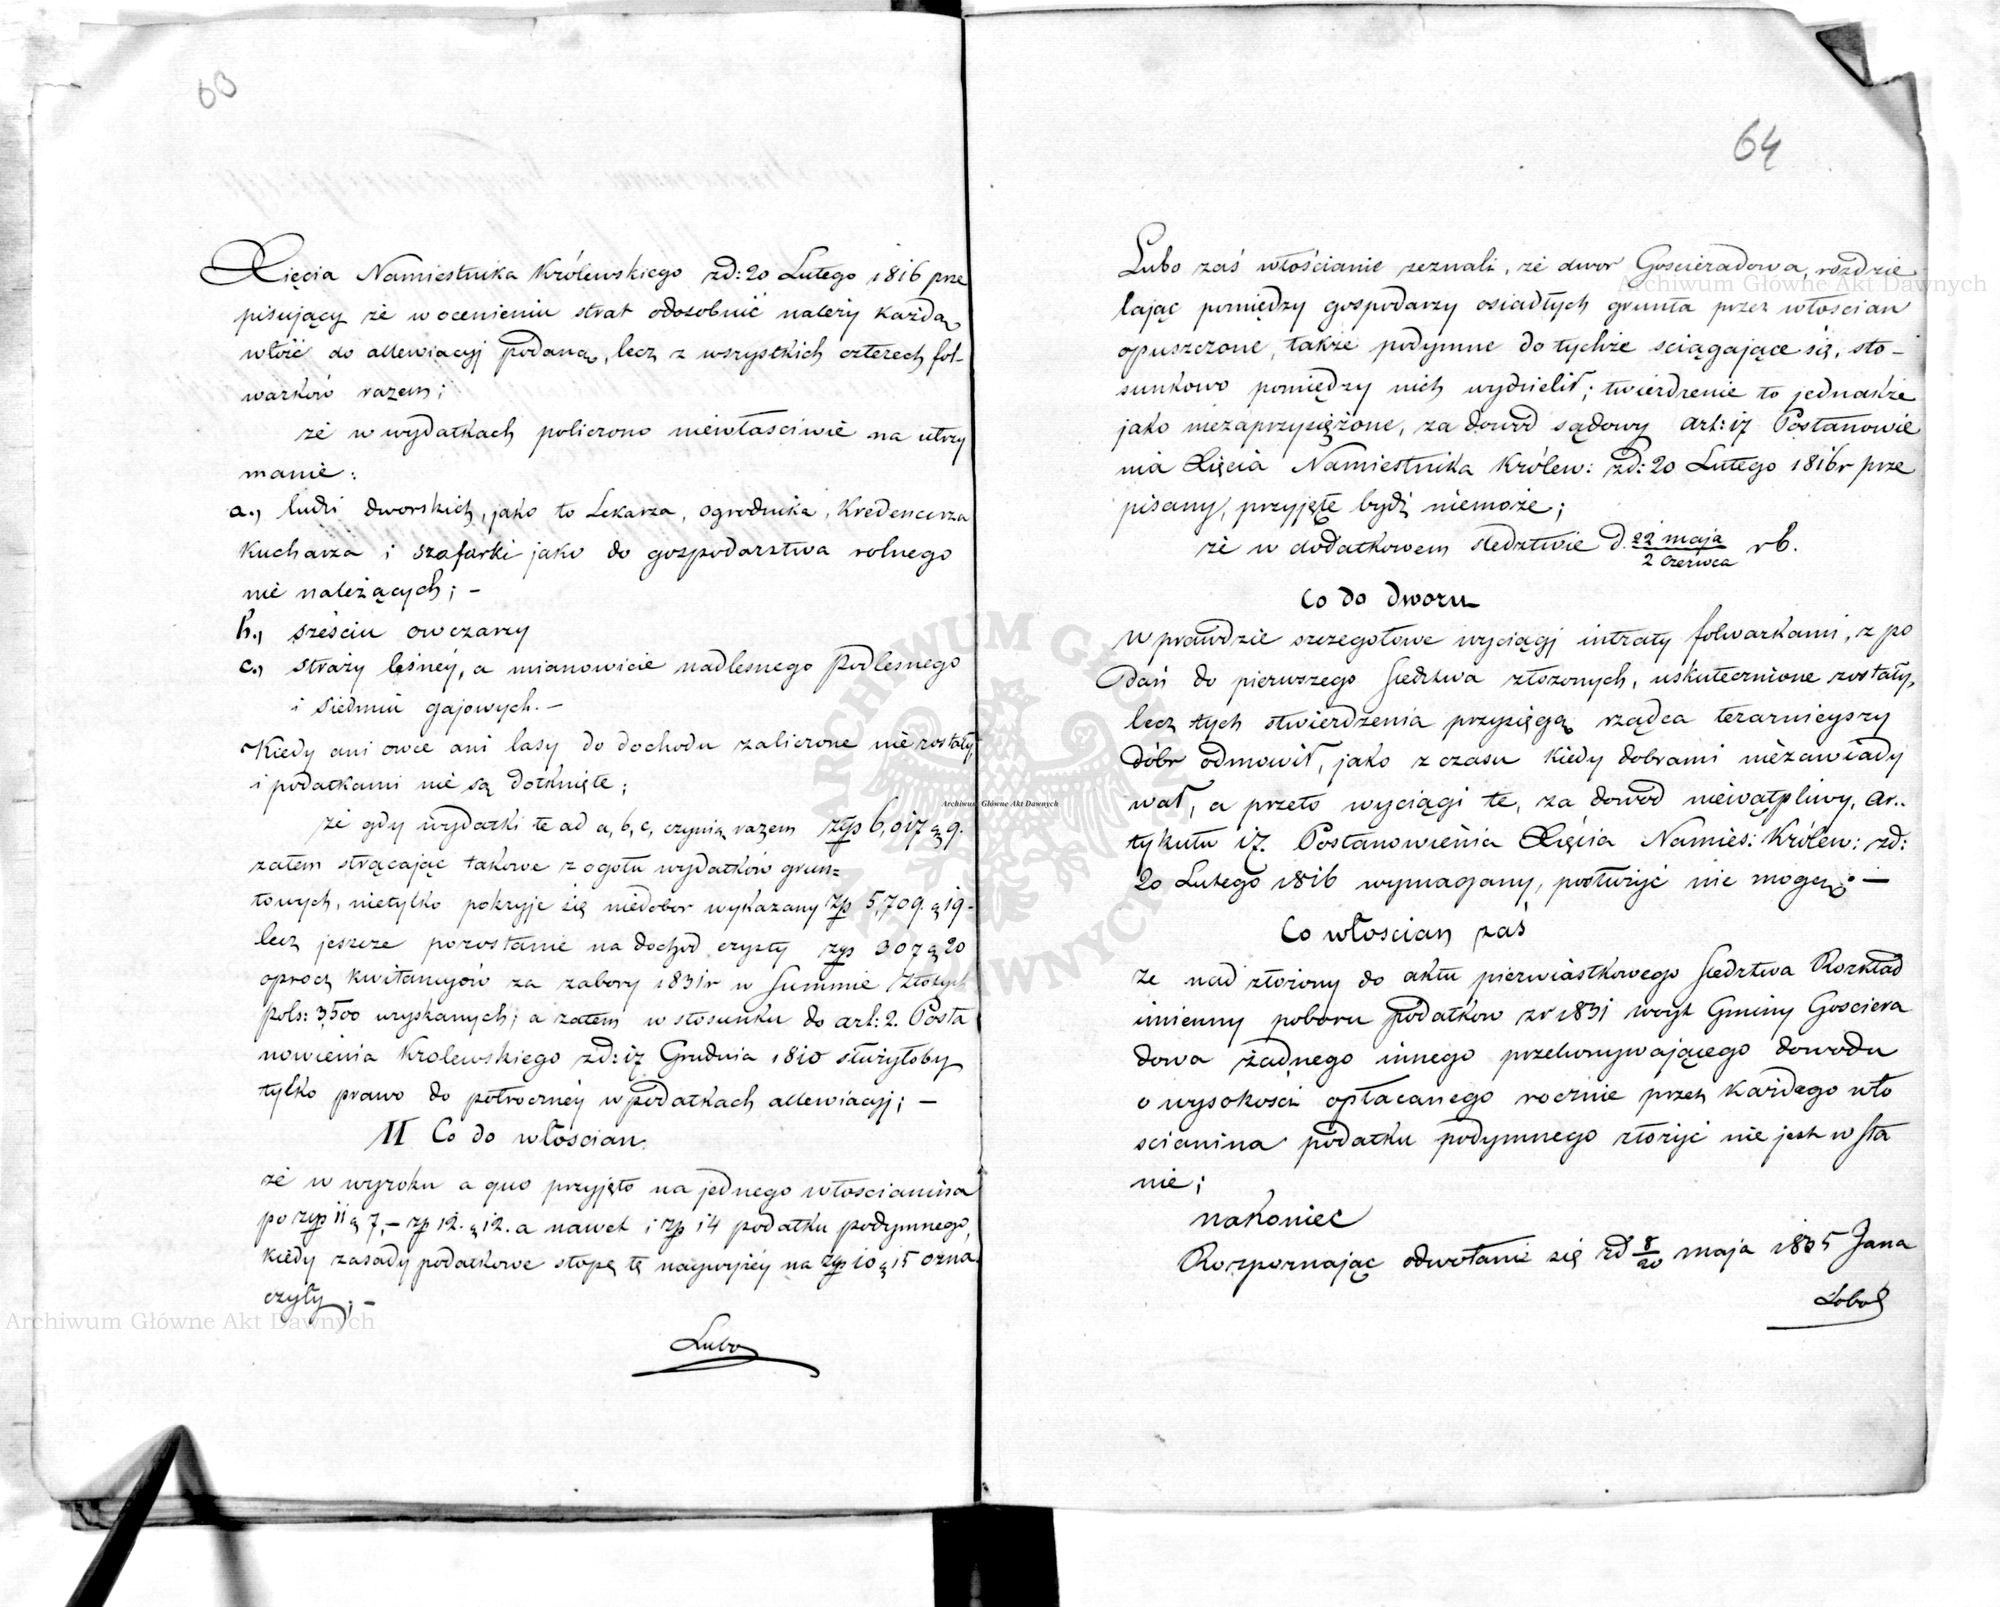 63
Xięcia Namiestnika Królewskiego zd: 20 Lutego 1816 prze
pisujący że w ocenieniu strat odosobnić należy każdą
włość do allewiacyj podaną, lecz z wszystkich czterech fol-
warków razem;
że w wydatkach policzono niewłaściwie na utrzy
manie:
a., ludzi dworskich, jako to Lekarza, ogrodnika, Kredencerza
Kucharza i szafarki jako do gospodarstwa rolnego
nie należących; -
b., sześciu owczarzy
c., straży leśnéy, a mianowicie nadlesnego podlesnego
i siedmiu gajowych. -
Kiedy ani owce ani lasy do dochodu zaliczone nie zostały,
i podatkami nie są dotknięte;
że gdy wydatki te ad a, b, c, czynią razem złp 6,017 g 9.
zatem strącając takowe z ogołu wydatków grun=
towych, nietylko pokryje się niedobor wykazany złp 5,709. g 19-
lecz jeszcze pozostanie na dochod czysty złp 307 g 20
oprocz kwitancyów za zabory 1831r w Summie Złotych
pols: 3,500 uzyskanych; a zatem w stosunku do art: 2. Posta
nowienia Krolewskiego zd: 17 Grudnia 1810 służyłoby
tylko prawo do półrocznéy w podatkach allewiacyj; -
II Co do włoscian.
że w wyroku a quo przyjęto na jednego włoscianina
po złp 11 g 7,- złp 12. g 12. a nawet i złp 14 podatku podymnego,
kiedy zasady podatkowe stopę tę naywyżéy na złp 10 g 15 ozna
czyły; -
Lubo
64
Lubo zaś włościanie zeznali, że dwor Gościeradowa, rozdzie
lając pomiędzy gospodarzy osiadłych grunta przez włoscian
opuszczone, także podymne do tychże sciągające się, sto-
sunkowo pomiędzy nich wydzielił; twierdzenie to jednakże
jako niezaprzysiężone, za dowód sądowy art: 17 Postanowie
nia Xięcia Namiestnika Królew: zd: 20 Lutego 1816r prze
pisany, przyjęte bydź niemoże;
że w dodatkowem sledztwie d. 22 maja / 2 czerwca rb.
Co do dworu
wprawdzie szczegołowe wyciągi intraty folwarkami, z po
dań do pierwszego sledztwa złożonych, uskutecznione zostały,
lecz tych stwierdzenia przysięgą rządca terazniéyszy
dóbr odmowił, jako z czasu kiedy dobrami niezawiady
wał, a przeto wyciągi te, za dowód niewątpliwy, ar-
tykułu 17. Postanowienia Xięcia Namies: Królew: zd:
20 Lutego 1816 wymagany, posłużyć nie mogą; -
Co włoscian zaś
że nad złożony do aktu pierwiastkowego sledztwa Rozkład
imienny poboru podatkow z r 1831 woyt Gminy Gosciera
dowa żadnego innego przekonywającego dowodu
o wysokości opłacanego rocznie przez każdego wło
scianina podatku podymnego złożyć nie jest w sta
nie;
nakoniec
Rozpoznając odwołanie się zd 8/20 maja 1835 Jana